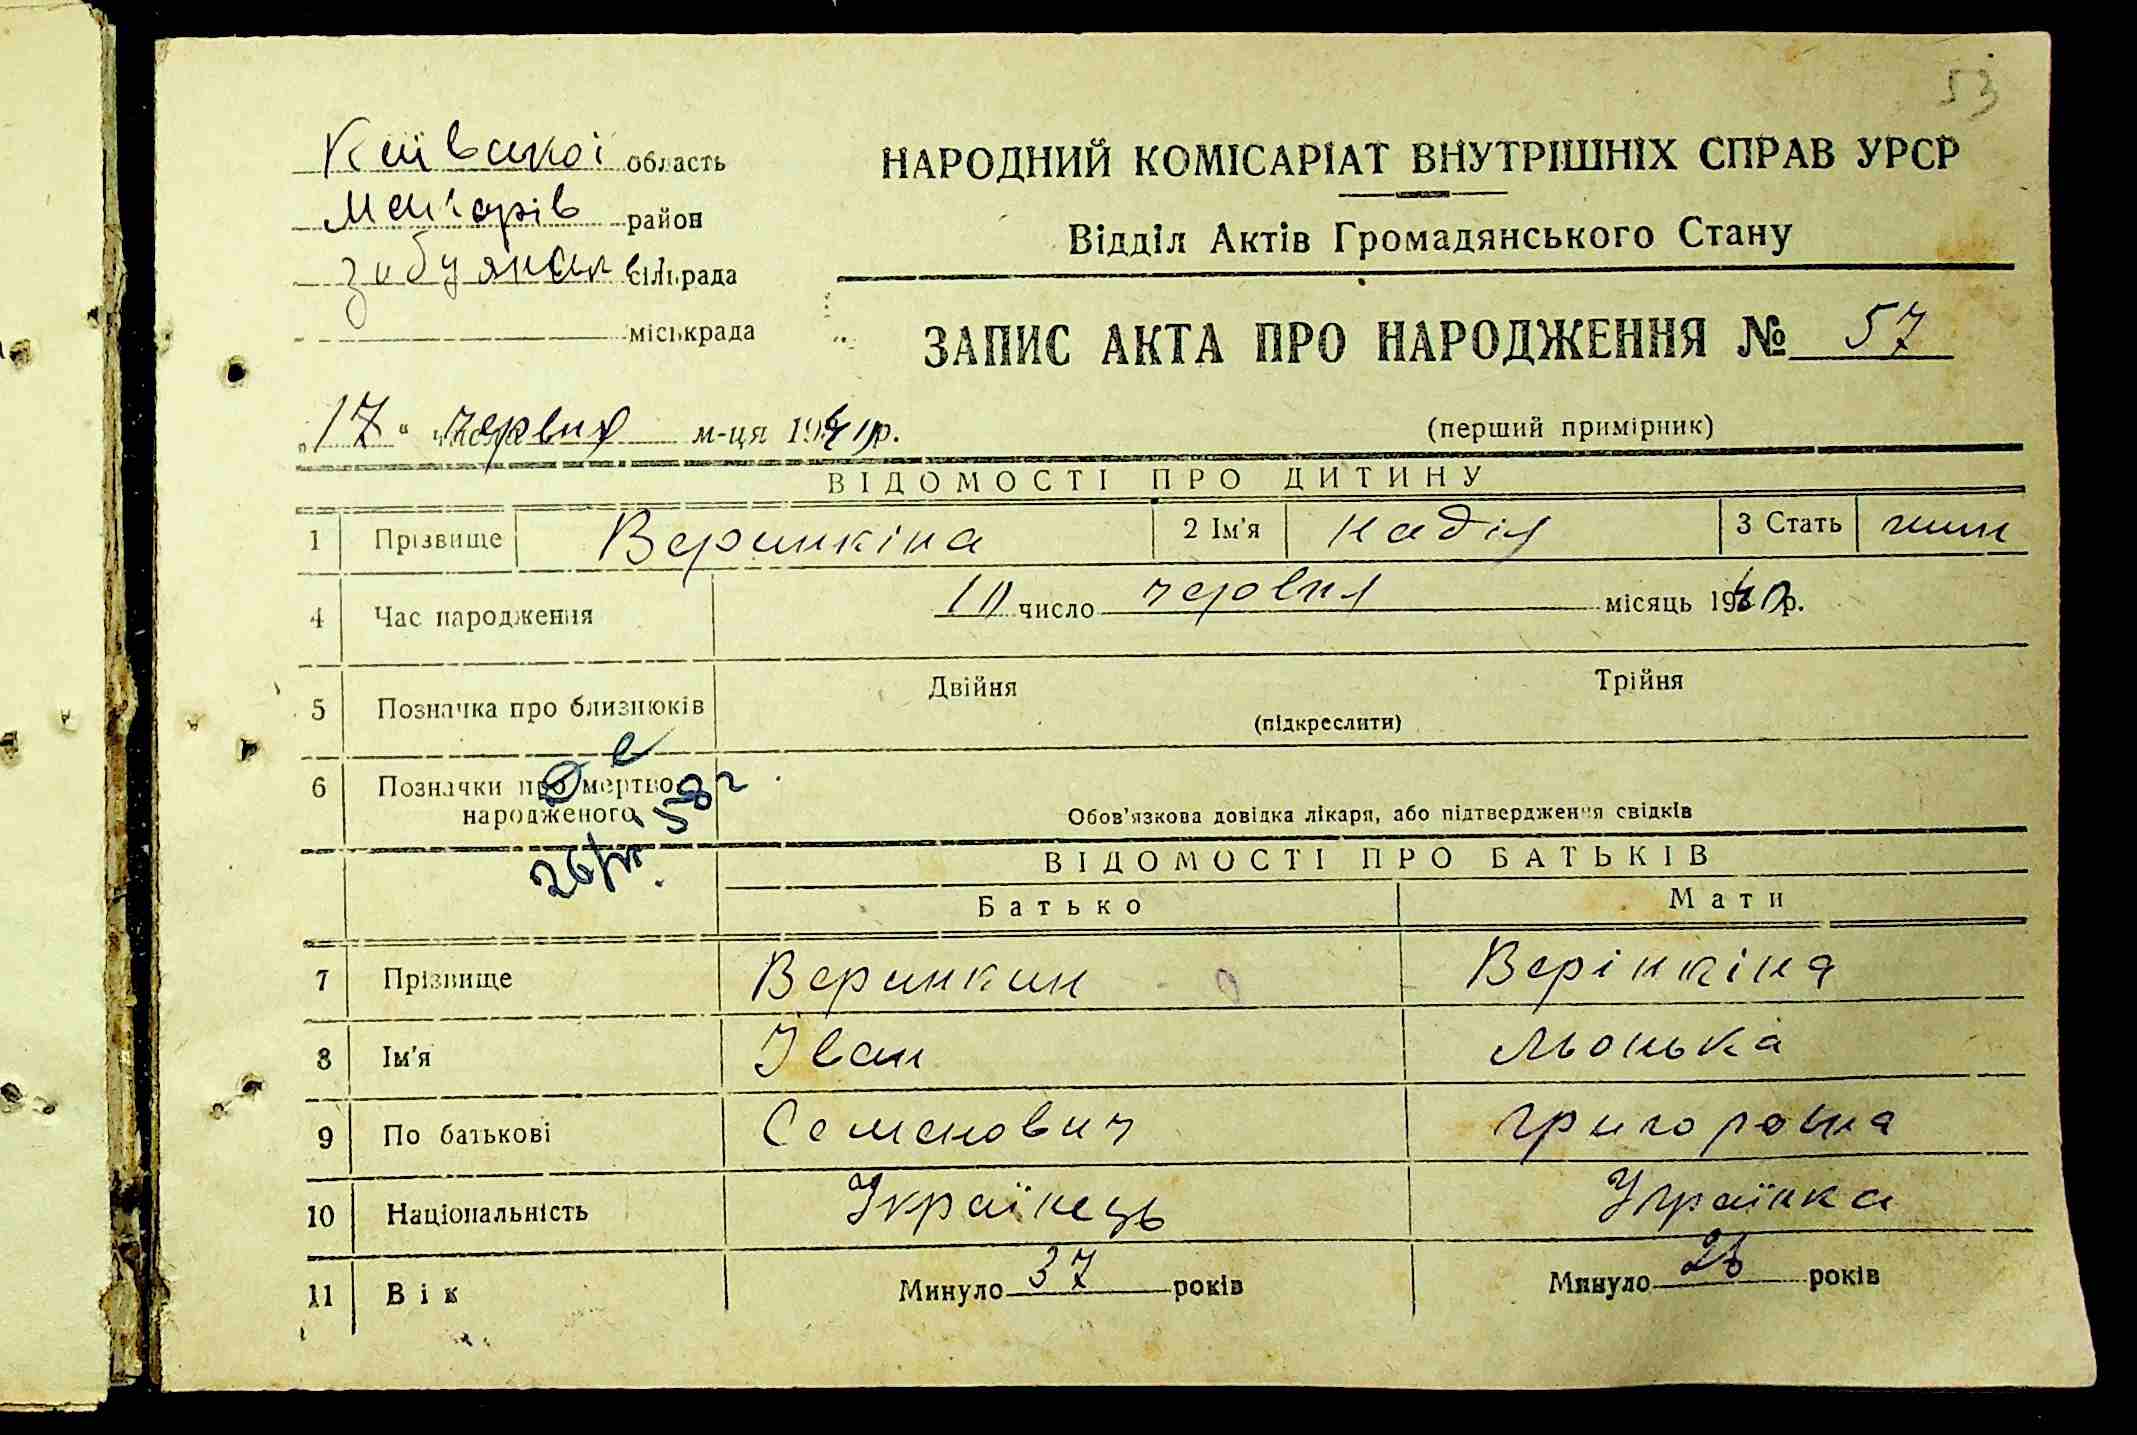 53
Київської область
НАРОДНИЙ КОМІСАРІАТ ВНУТРІШНІХ СПРАВ УРСР
район
Відділ Актів Громадянського Стану
сільрада
міськрада
ЗАПИС АКТА ПРО НАРОДЖЕННЯ № 57
„17“ червня м-ця 1940 р.
(перший примірник)
ВІДОМОСТІ ПРО ДИТИНУ
1 Прізвище Веринкіна 2 Ім'я Надія 3 Стать жін
4 Час народження 10 число червня місяць 1940 р.
5 Позначка про близнюків Двійня Трійня
(підкреслити)
6 Позначки про мертво-
народженого Обов'язкова довідка лікаря, або підтвердження свідків
ВІДОМОСТІ ПРО БАТЬКІВ
Батько Мати
7 Прізвище Веринкин Верінкіна
8 Ім'я Іван Льонька
9 По батькові Семенович Григоровна
10 Національність Українець Українка
11 Вік Минуло 37 років Минуло років